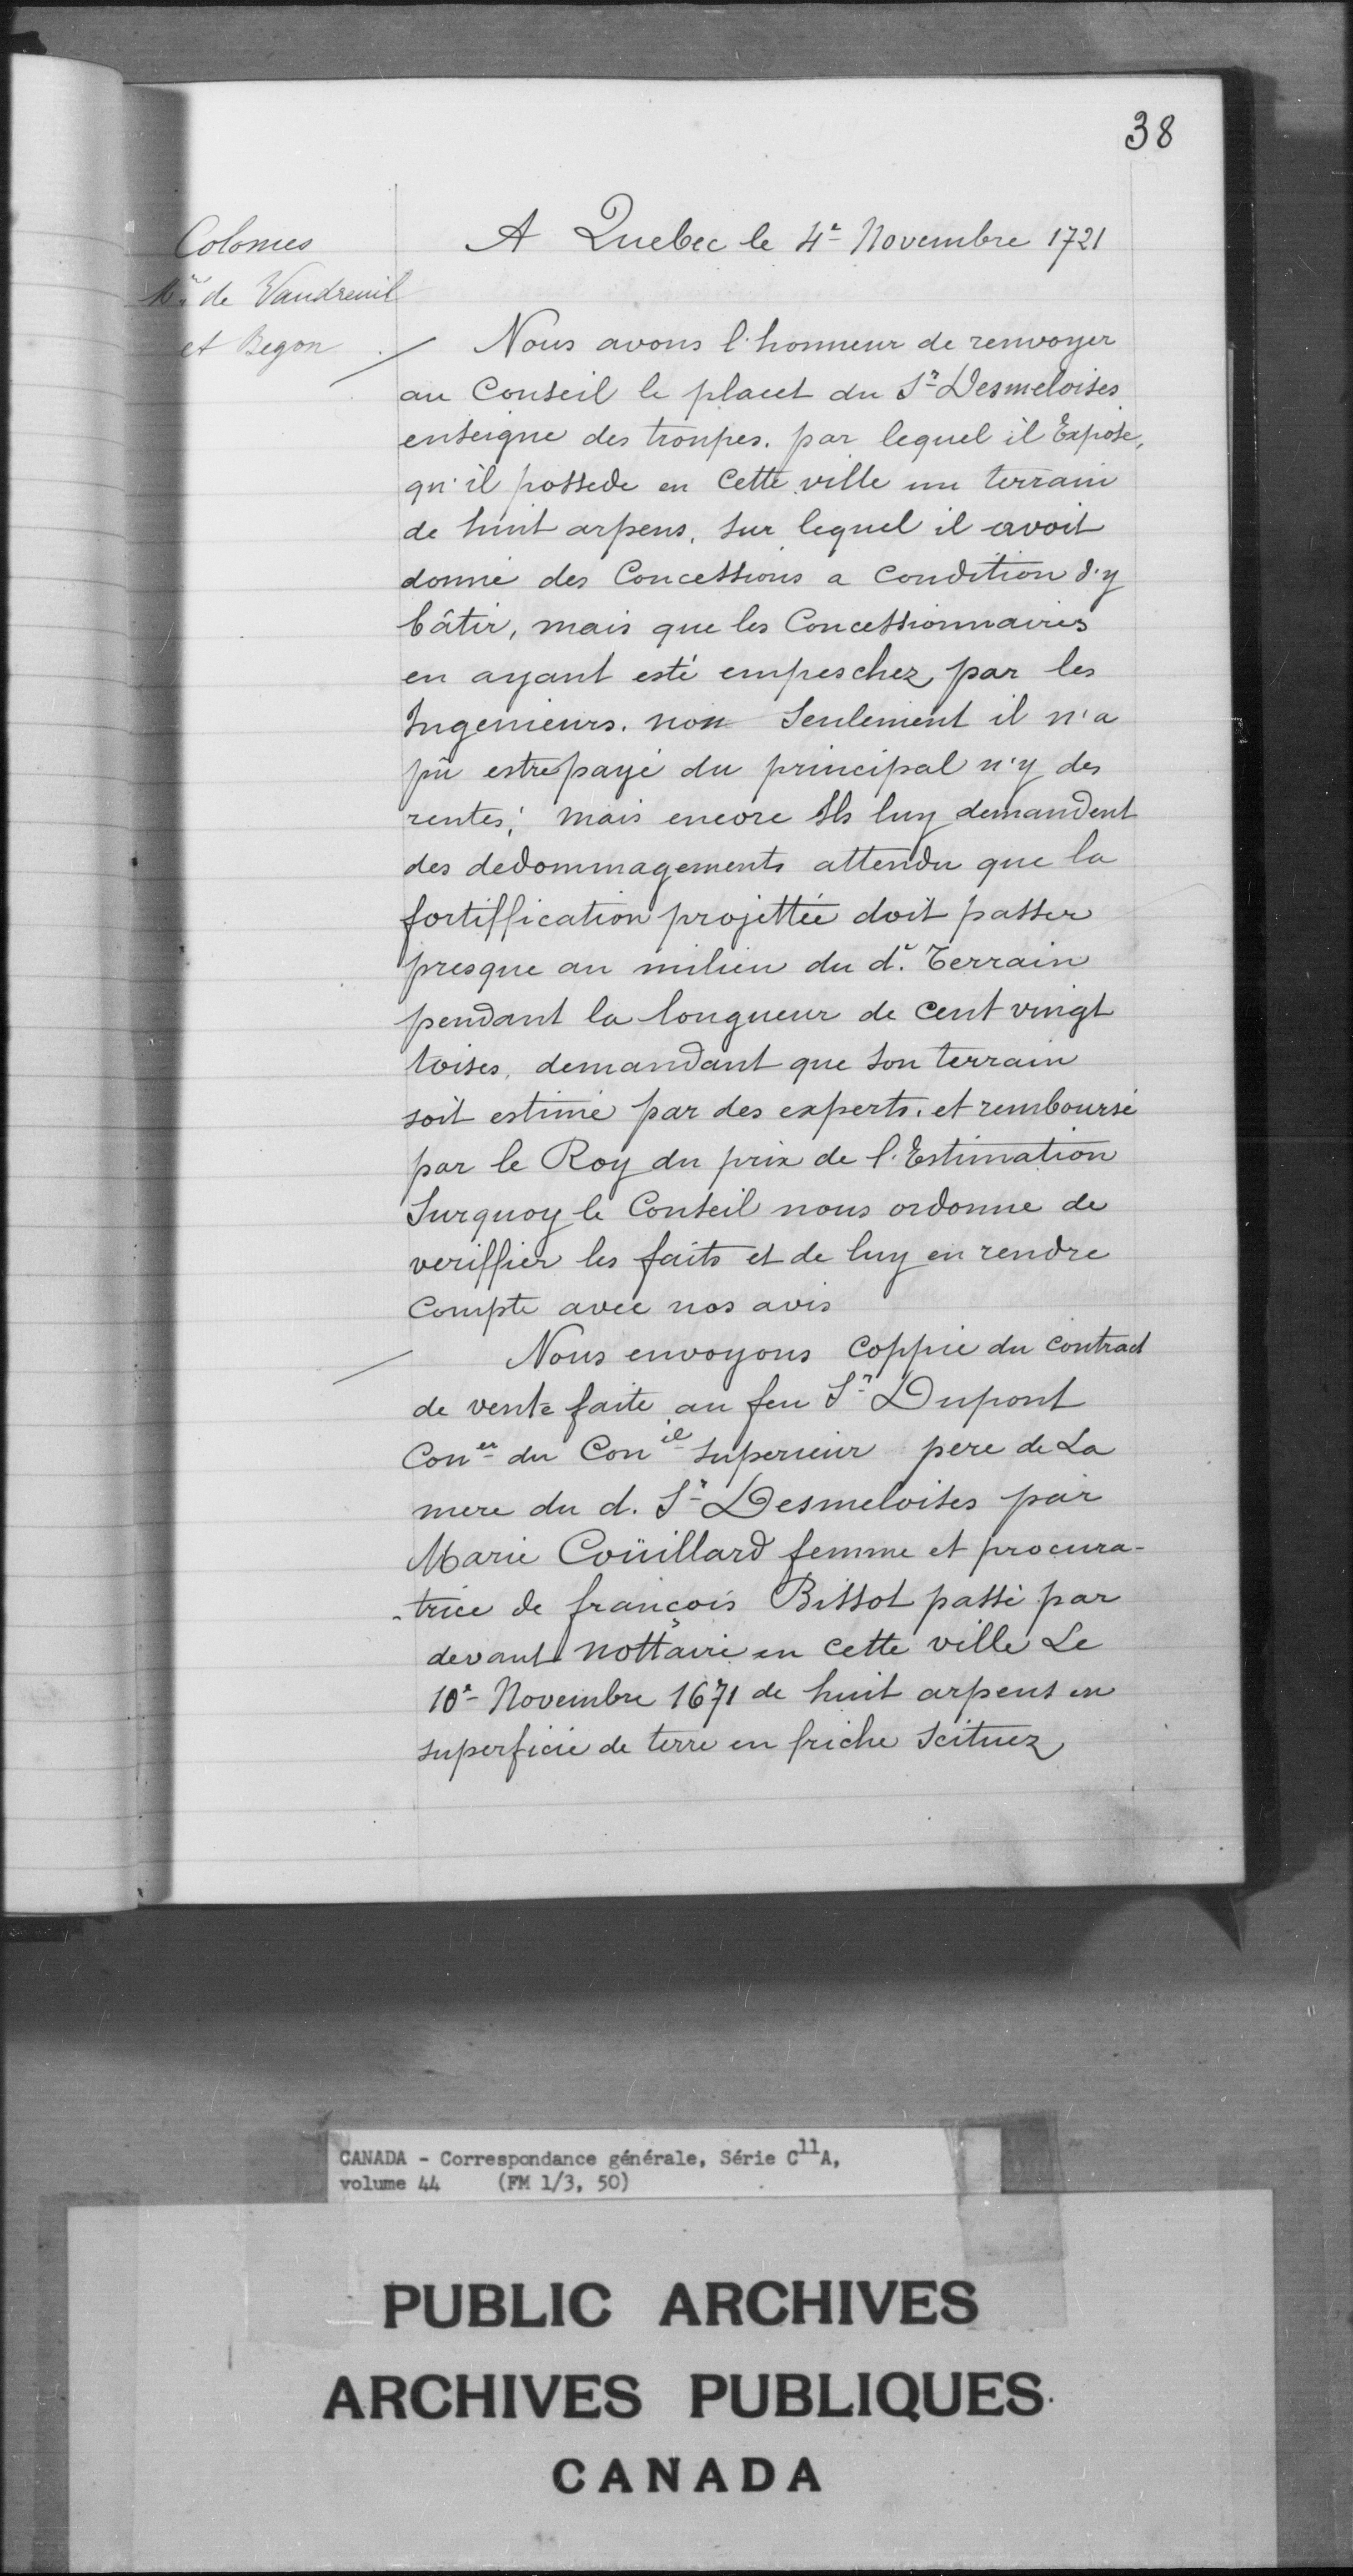 38
Colonies
Mrs de Vaudreuil
et Begon
A Quebec le 4e Novembre 1721
Nous avons l'honneur de renvoyer
au Conseil le placet du Sr Desmeloises
enseigne des troupes. par lequel il Expose,
qu'il possede en Cette ville un terrain
de huit arpens, sur lequel il avoit
donné des Concessions a condition d'y
bâtir, mais que les Concessionnaires
en ayant esté empeschez par les
Ingenieurs. non seulement il n'a
pû estre payé du principal n'y des
rentes; mais encore Ils luy demandent
des dedommagements attendu que la
fortiffication projettée doit passer
presque au milieu du d. Terrain
pendant la longueur de cent vingt
toises, demandant que son terrain
soit estimé par des experts. et remboursé
par le Roy du prix de l'Estimation
Surquoy le Conseil nous ordonne de
veriffier les faits et de luy en rendre
Compte avec nos avis
Nous envoyons Coppie du contract
de vente faite au feu Sr Dupont
Coner du Conil superieur pere de La
mere du d. Sr Desmeloises par
Marie Coüillard femme et procura-
-trice de françois Bissot passé par
devant nottaire en cette ville Le
10e Novembre 1671 de huit arpens en
superficie de terre en friche scituez
CANADA - Correspondance générale, Série C11A,
volume 44 (FM 1/3, 50)
PUBLIC ARCHIVES
ARCHIVES PUBLIQUES
CANADA